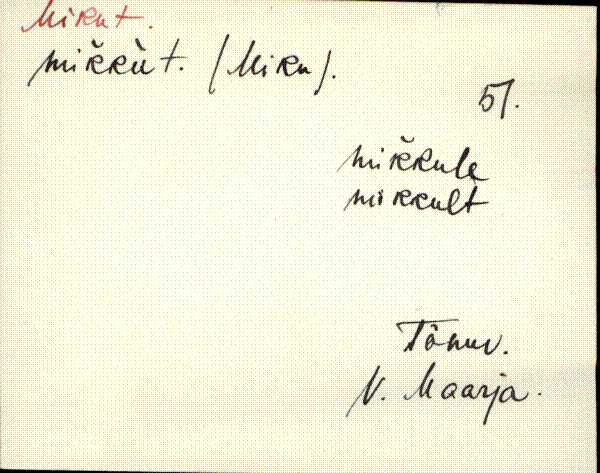 Mikut.
mik̆kùt. (Miku).
51.
mik̆kule
mikkult
Tõnuv.
V. Maarja.